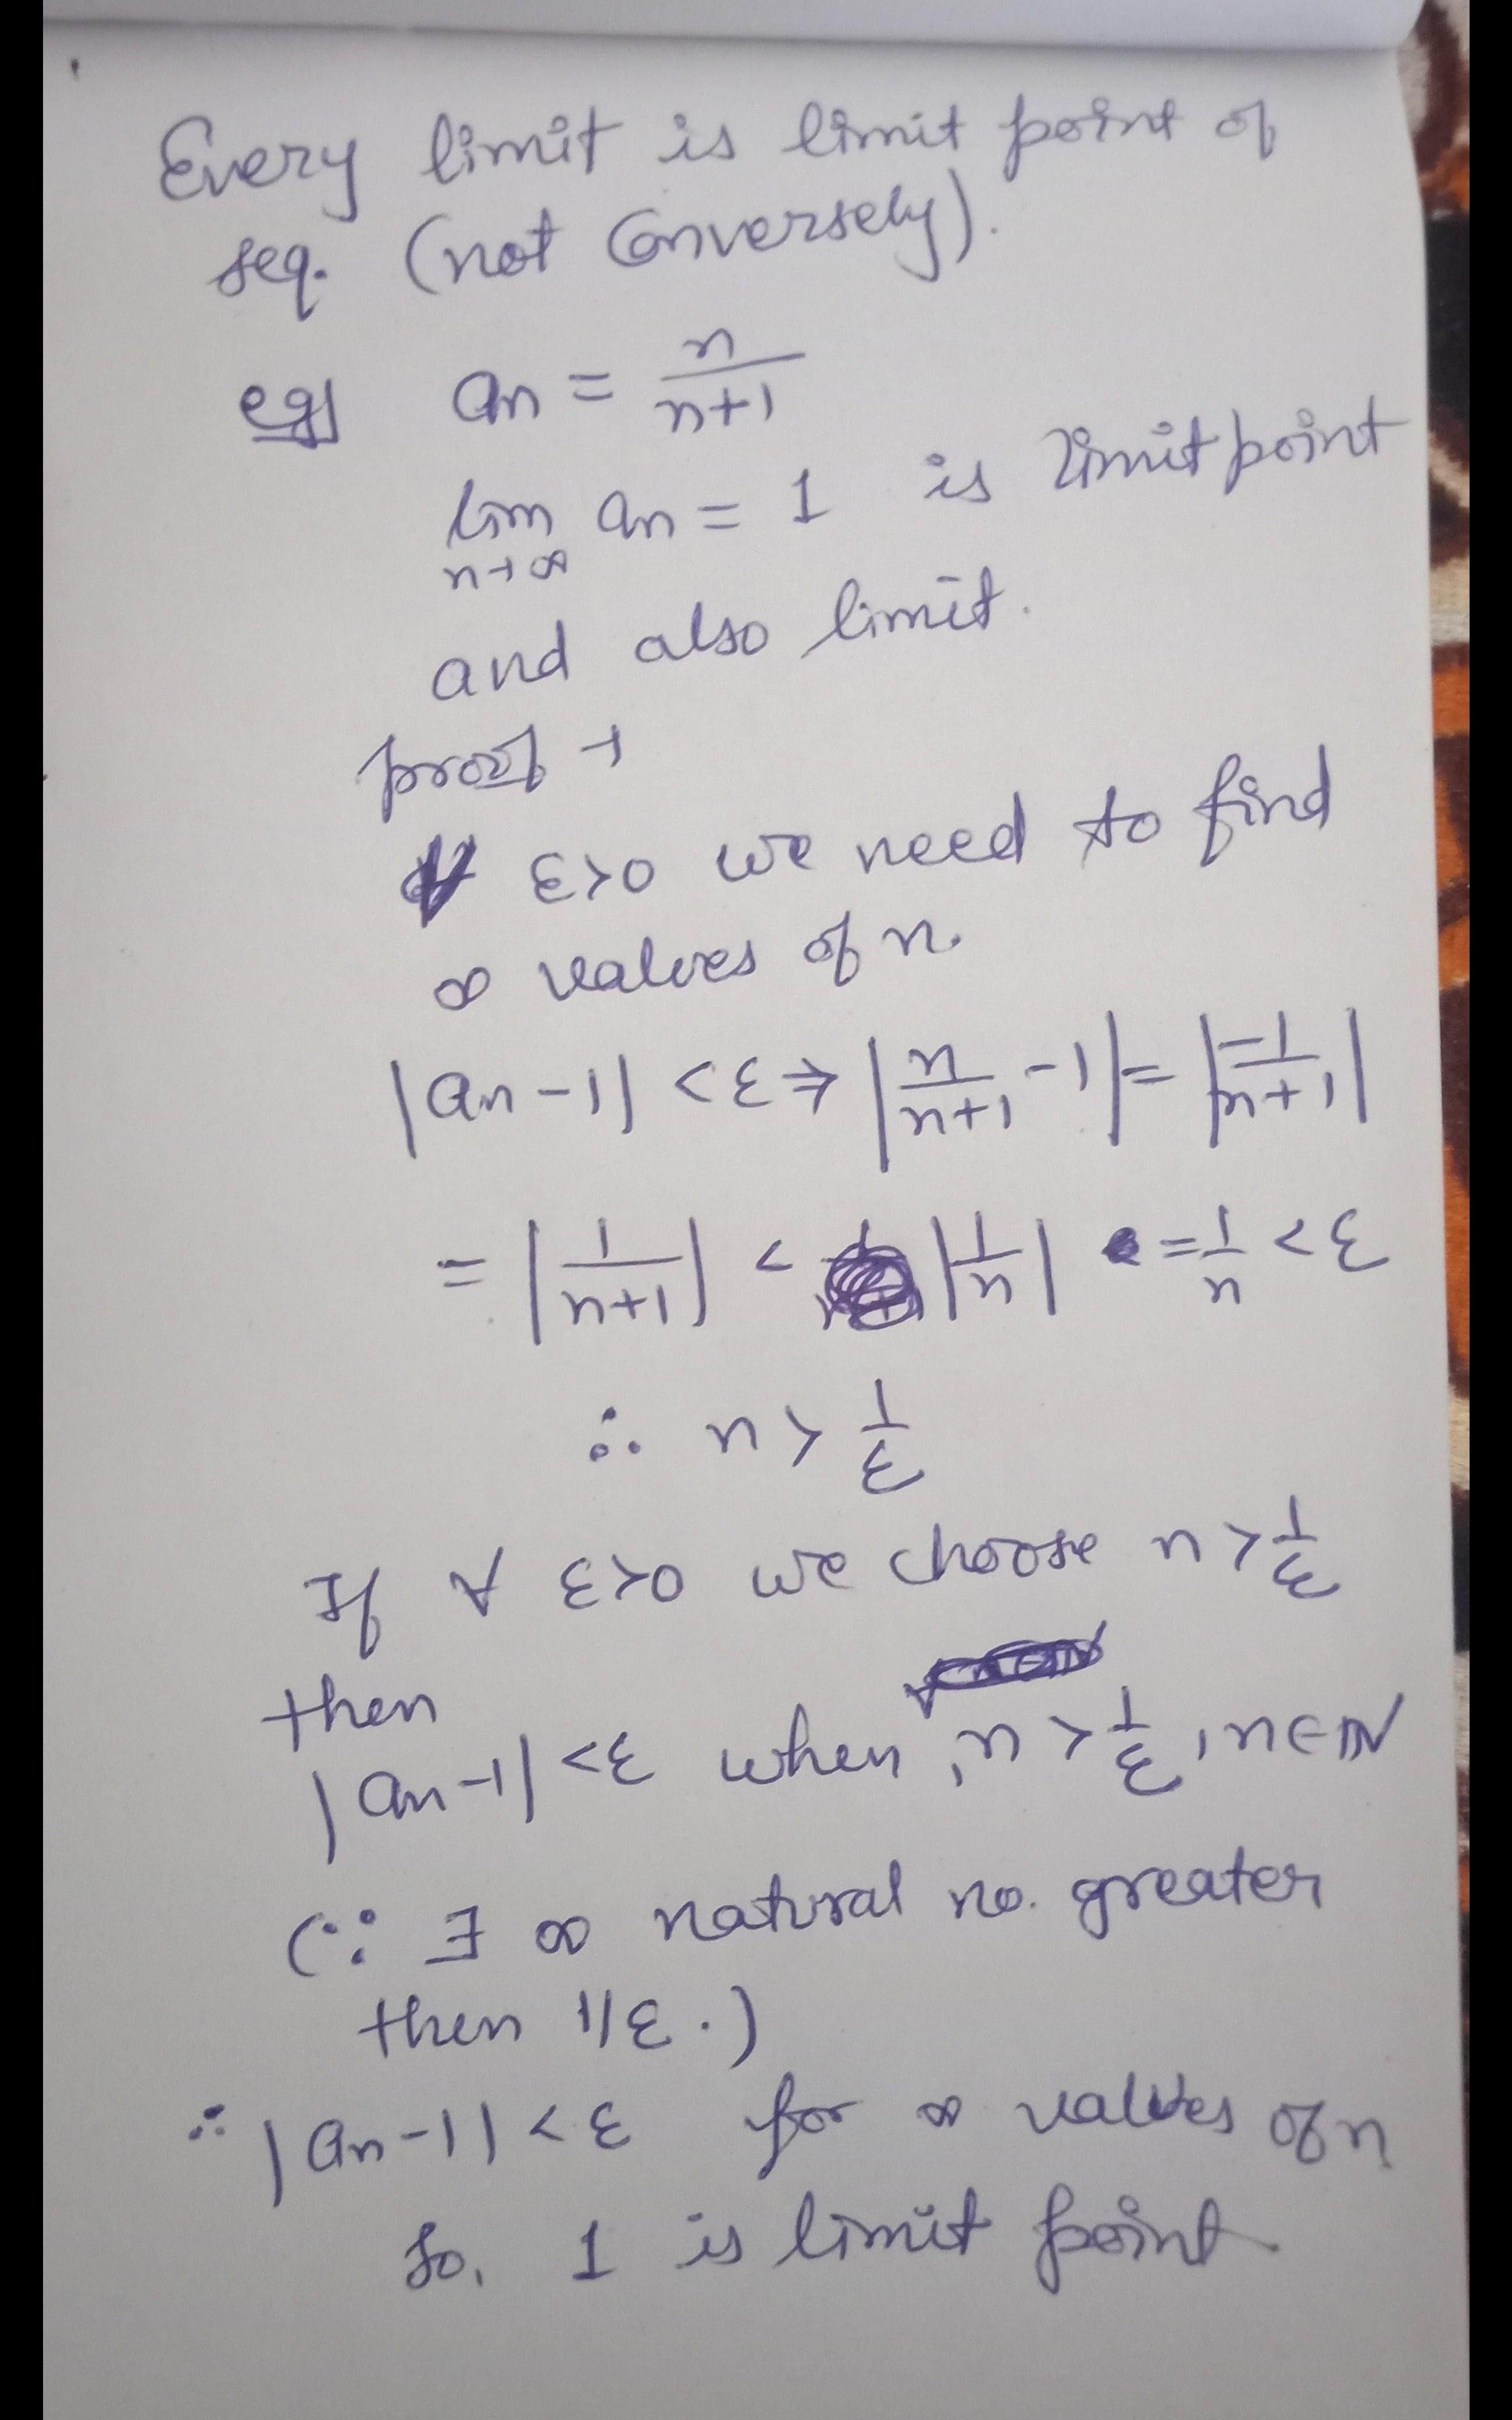 Every limit is limit point of
seq. (not Conversely).
eg) an = n/(n+1)
lim n→∞ an = 1 is limit point
and also limit.
proof →
∀ ε>0 we need to find
∞ values of n.
|an-1| <ε ⇒ |n/(n+1) -1| = |-1/(n+1)|
= |1/(n+1)| < |1/n| = 1/n < ε
∴ n > 1/ε
If ∀ ε>0 we choose n > 1/ε
then
|an-1| <ε when, n > 1/ε, n∈IN
(∵ ∃ ∞ natural no. greater
then 1/ε.)
∴ |an-1| < ε for ∞ values of n
so, 1 is limit point